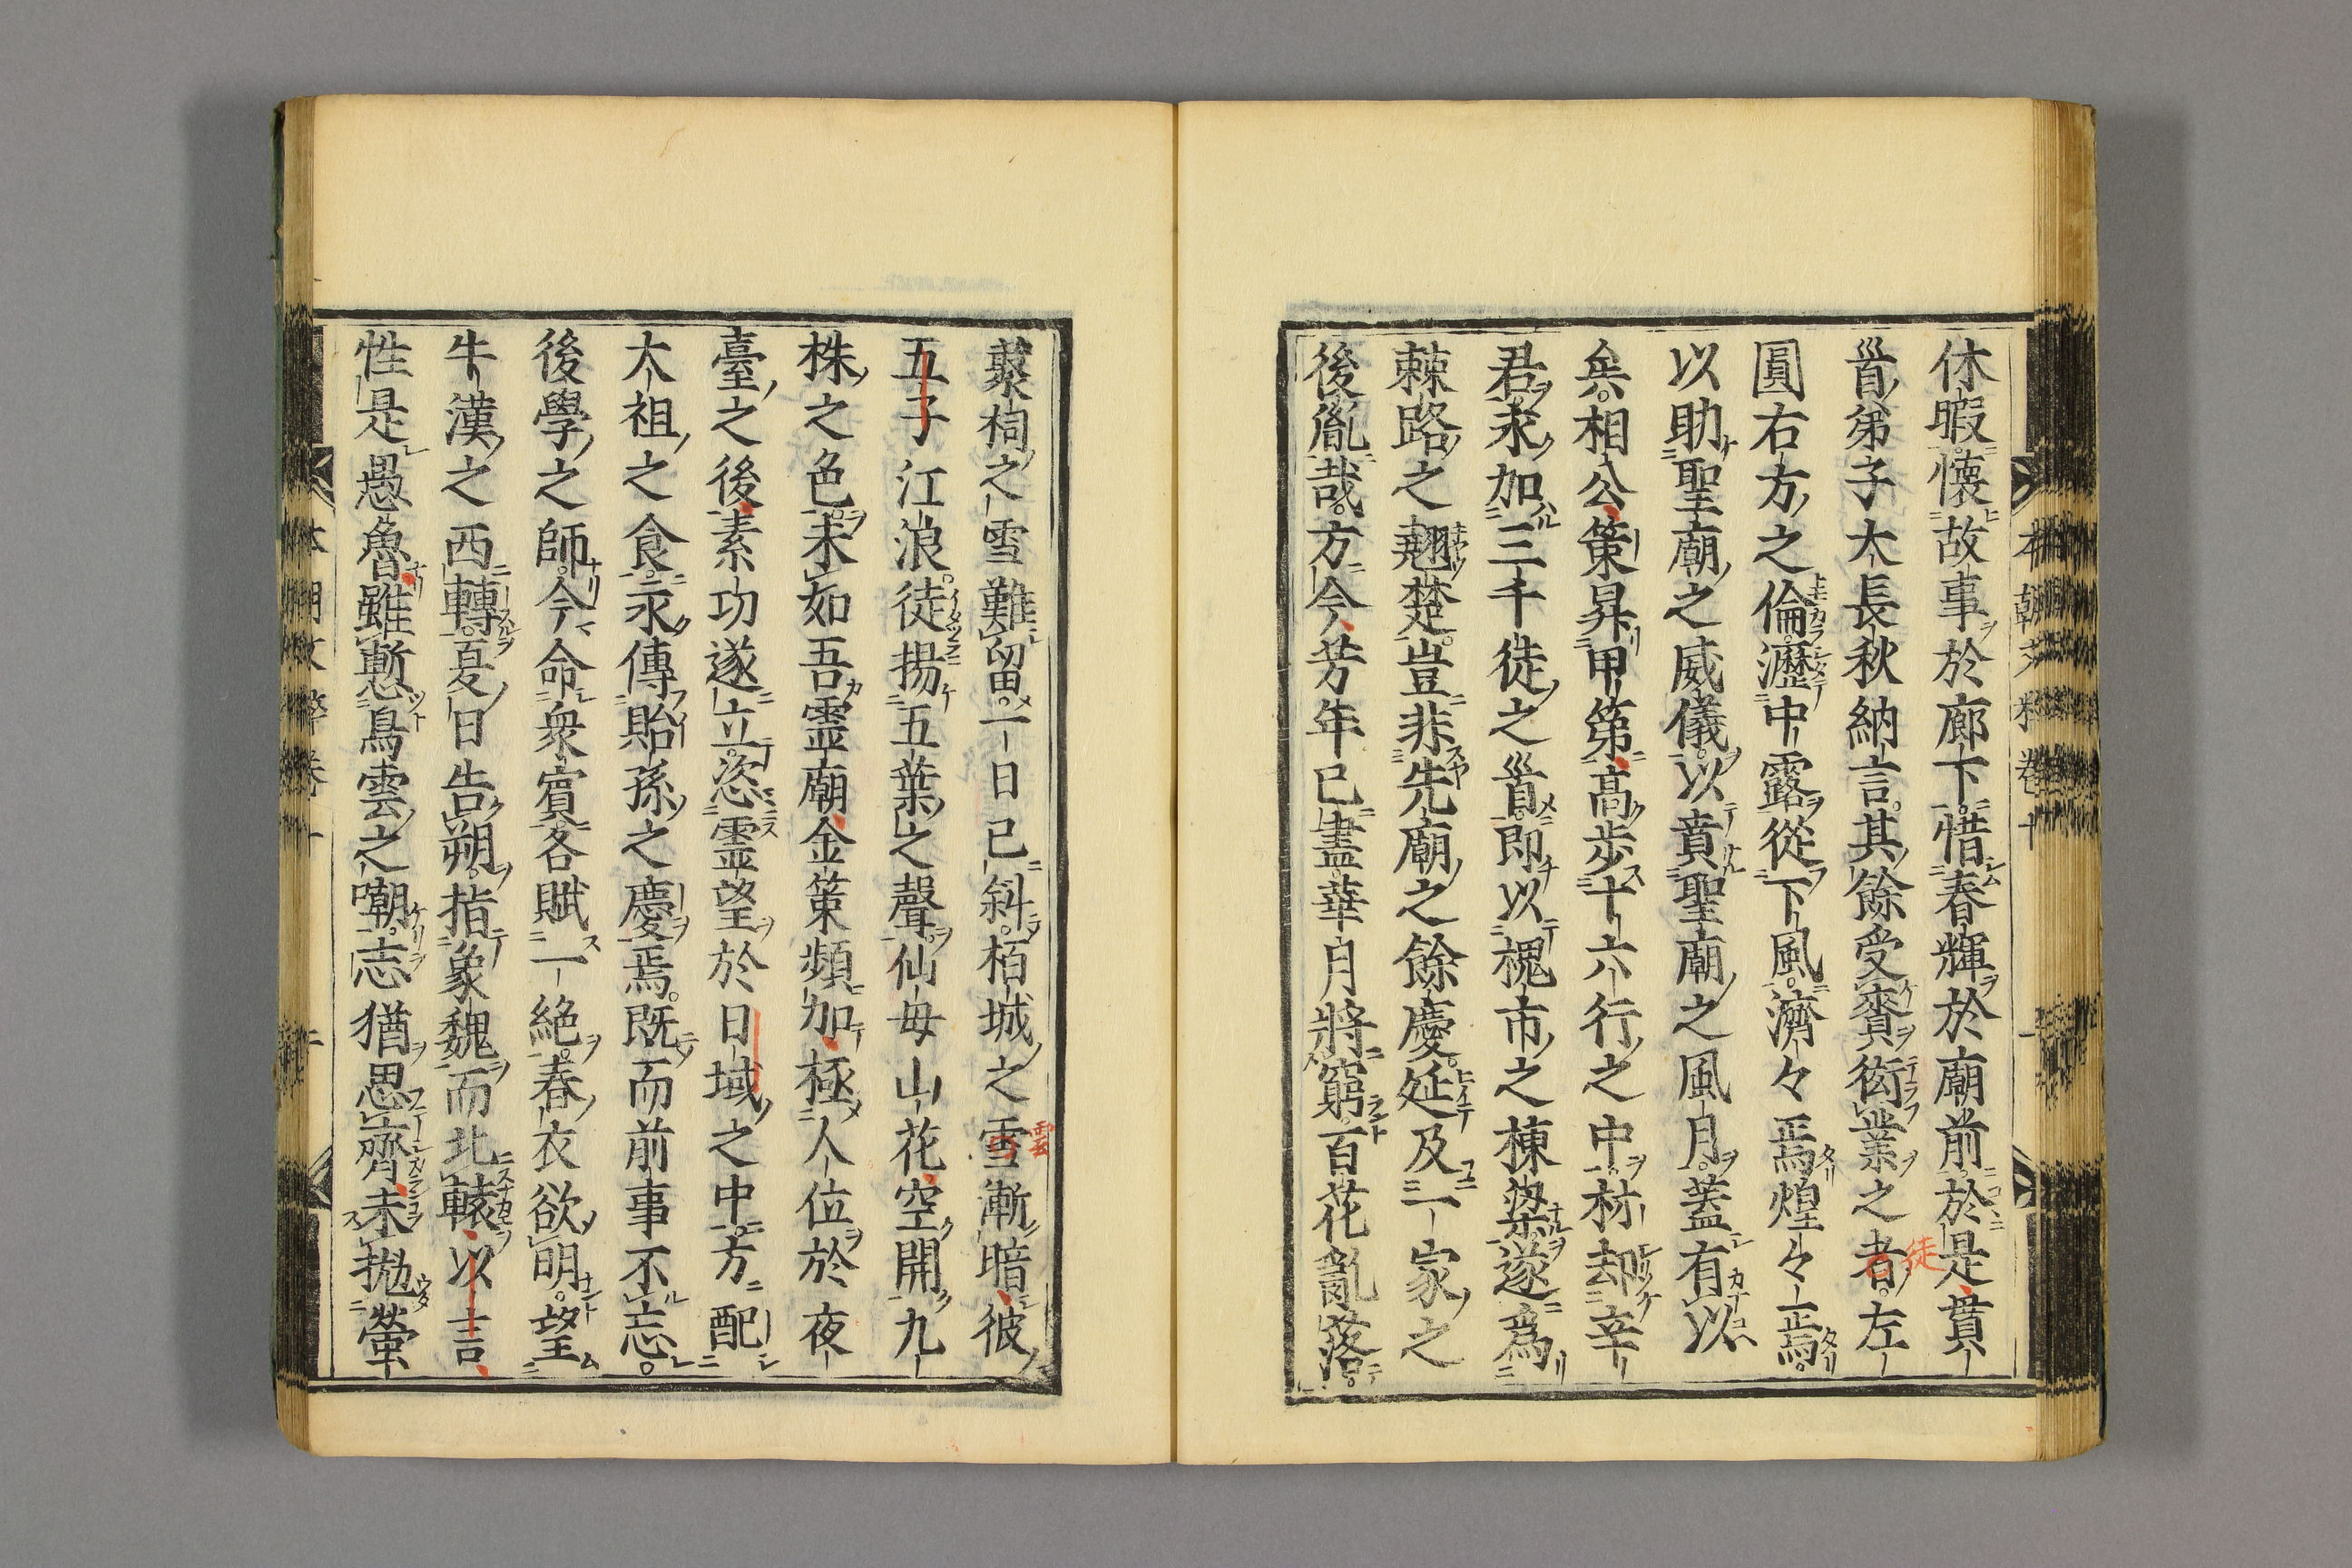 休暇懐故事於廊下惜春輝於廟前於是貫
首弟子大長秋納言其餘受賚衒業之者左
圓右方之倫瀝中露從下風濟々焉煌々焉
以助聖廟之威儀以賁聖廟之風月蓋有以
矣相公策昇甲第高歩十六行之中材却辛
君永加三千徒之首即以槐市之棟梁遂爲
棘路之翹楚豈非先廟之餘慶延及一家之
後胤哉方今芳年已盡華月將窮百花亂落
叢祠之雪難留一日已斜栢城之雪漸暗彼
五子江浪徒揚五葉之聲仙母山花空開九
株之色未如吾靈廟金策頻加極人位於夜
臺之後素功遂立恣靈望於日域之中方配
太祖之食永傳貽孫之慶焉既而前事不忘
後學之師今命衆賓各賦一絶春衣欲明望
牛漢之西轉夏日告朔指象魏而北轅以言
性是愚魯雖慙鳥雲之嘲志猶思齊未抛螢
本朝文粹卷十
徒
雲